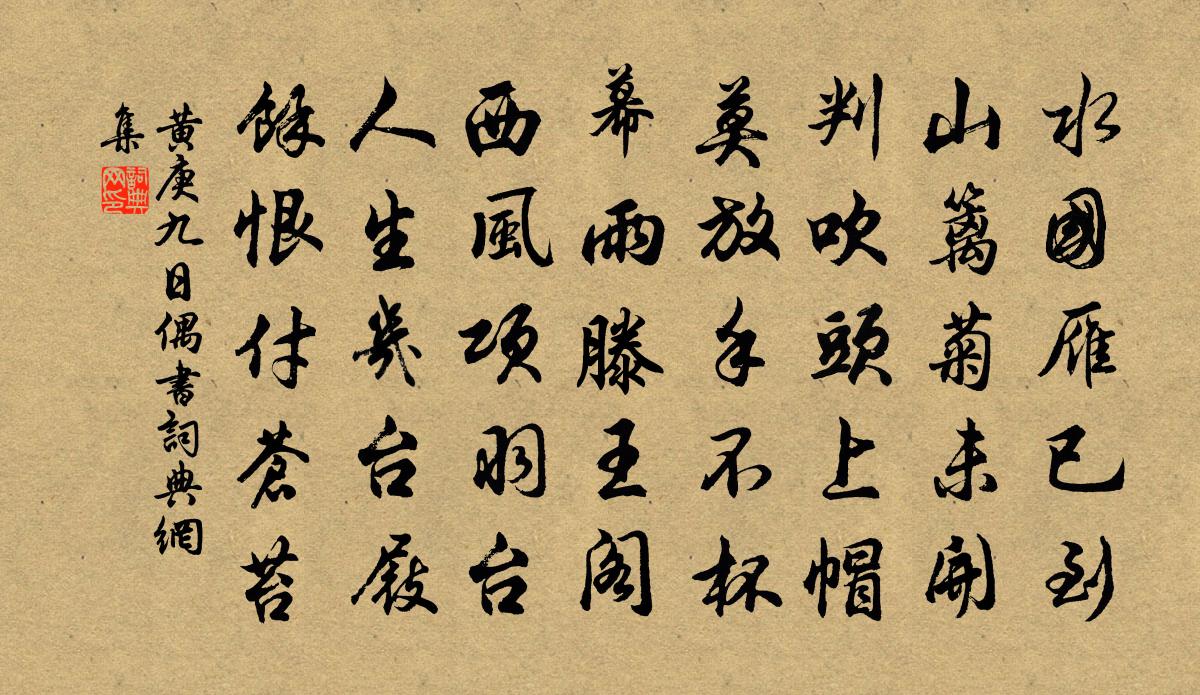 水國雁已到
山篱菊未開
判吹頭上帽
莫放手不杯
幕雨滕王閣
西風項羽台
人生幾台屐
餘恨付蒼苔
黄庚九日偶書詞典網
集
詞典网印